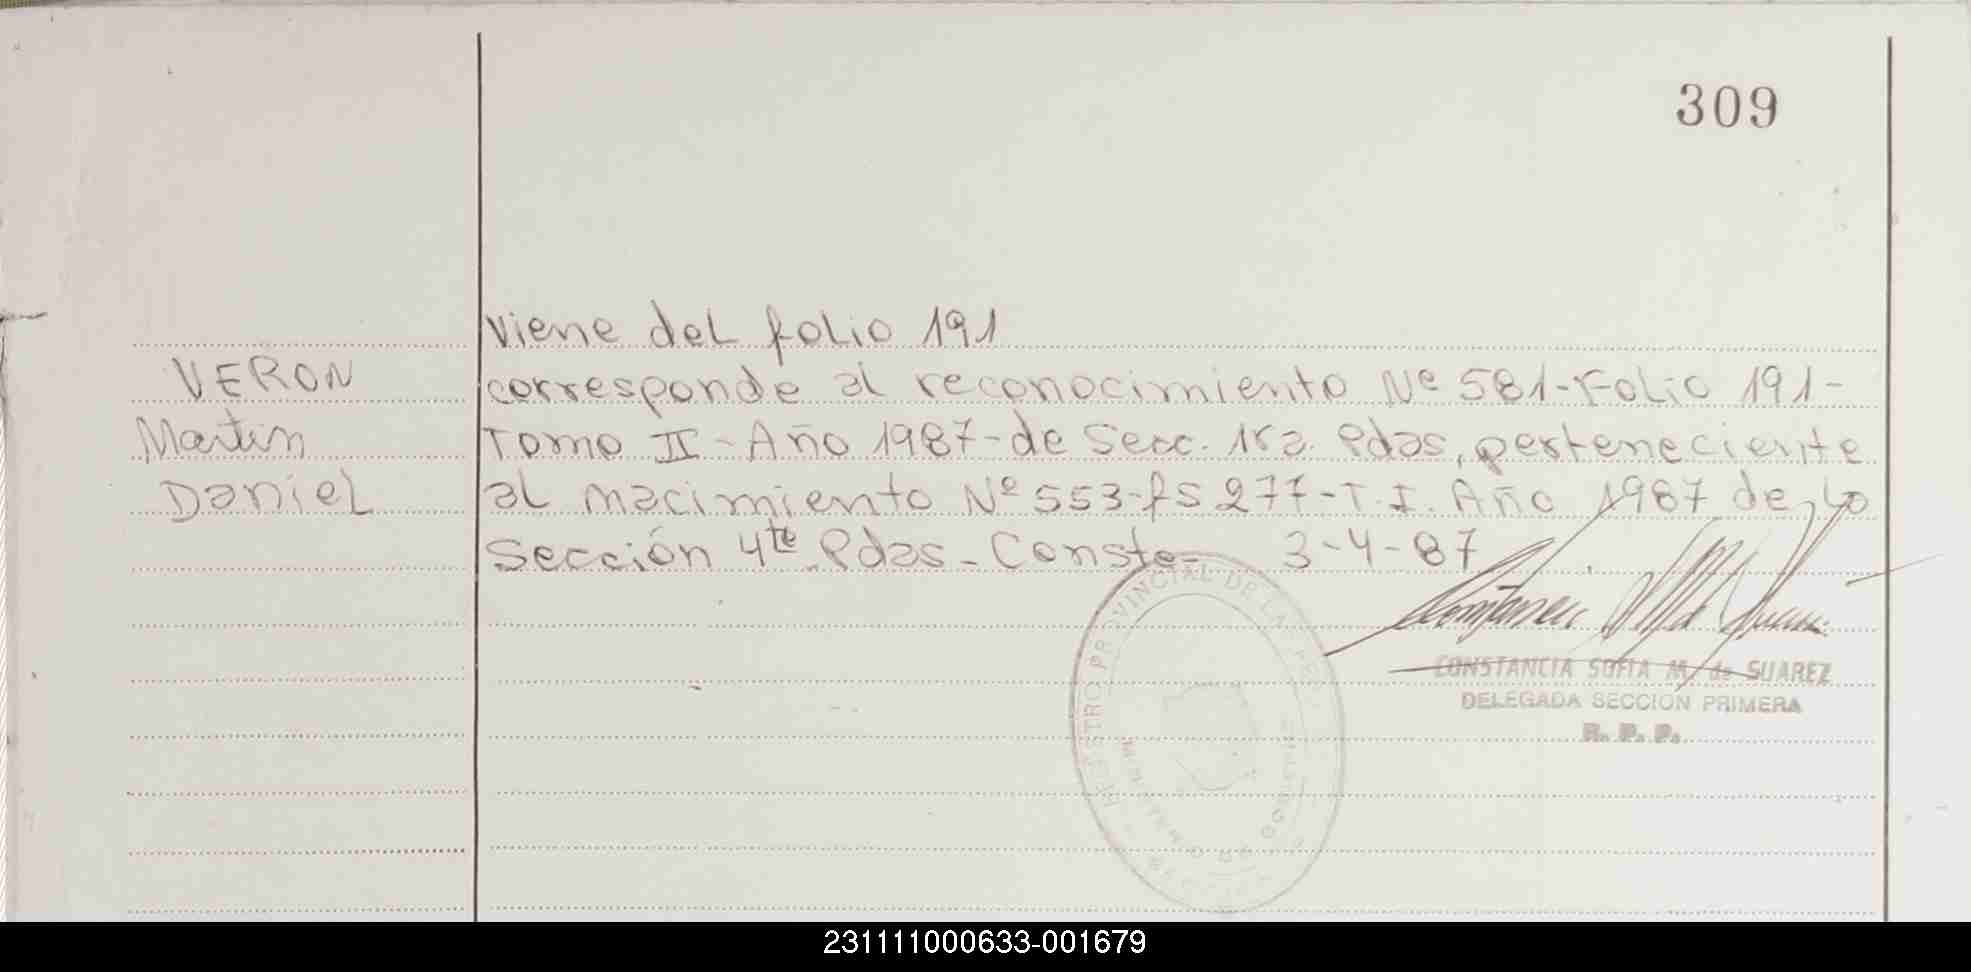 309
viene del folio 191
VERON
corresponde al reconocimiento Nº 581-Folio 191-
Martin
Tomo II - Año 1987-de Secc. 1ra. Pdas, perteneciente
Daniel
al nacimiento Nº 553-fs 277-T.I. Año 1987 de la
Sección 4ta Pdas - Conste- 3-4-87
REGISTRO PROVINCIAL DE LAS
CONSTANCIA SOFIA M. de SUAREZ
DELEGADA SECCION PRIMERA
R. P. P.
231111000633-001679